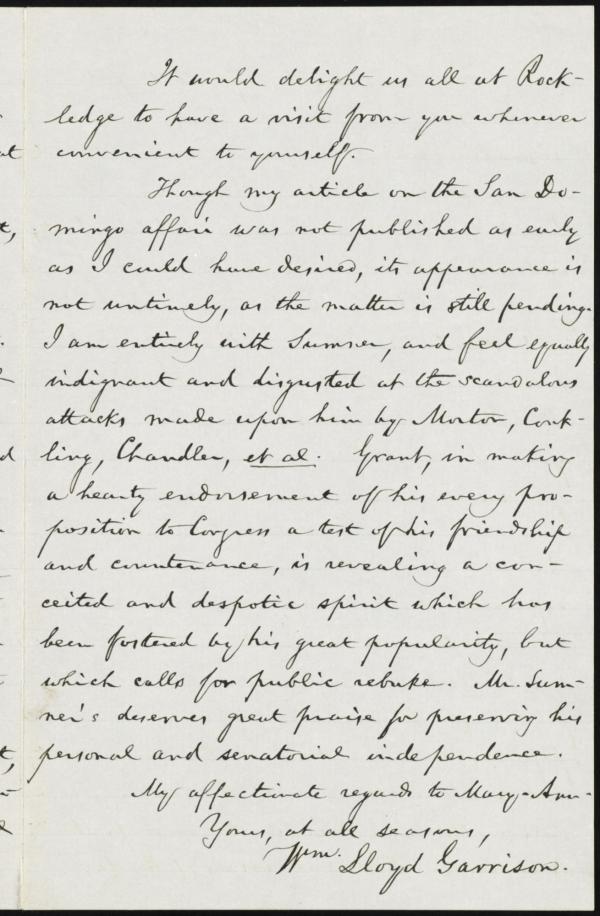 It would delight us all at Rock-
ledge to have a visit from you whenever
convenient to yourself.
Though my article on the San Do-
mingo affair was not published as early
as I could have desired, its appearance is
not untimely, as the matter is still pending.
I am entirely with Sumner, and feel equally
indignant and disgusted at the scandalous
attacks made upon him by Morton, Conk-
ling, Chandler, et al. Grant, in making
a hearty endorsement of his every pro-
position to Congress a test of his friendship
and countenance, is revealing a con-
ceited and despotic spirit which has
been fostered by his great popularity, but
which calls for public rebuke. Mr. Sum-
ner's deserves great praise for preserving his
personal and senatorial independence.
My affectionate regards to Mary-Ann.
Yours, at all seasons,
Wm. Lloyd Garrison.